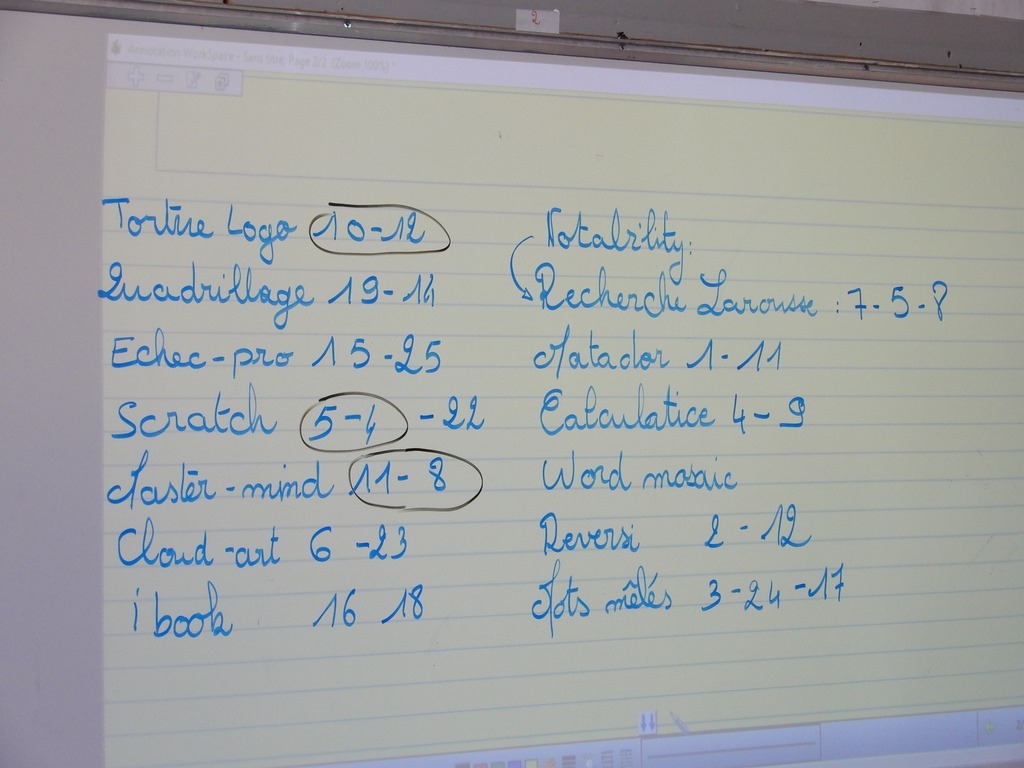 2
Annotation WorkSpace - Sans titre, Page 2/2 (Zoom 100%) *
Tortue Logo 10-12
Quadrillage 19-14
Echec-pro 15-25
Scratch 5-4 -22
Master-mind 11-8
Cloud-art 6-23
i book 16 18
Notability:
Recherche Larousse : 7-5-8
Matador 1-11
Calculatice 4-9
Word mosaic
Reversi 2-12
Mots mêlés 3-24-17